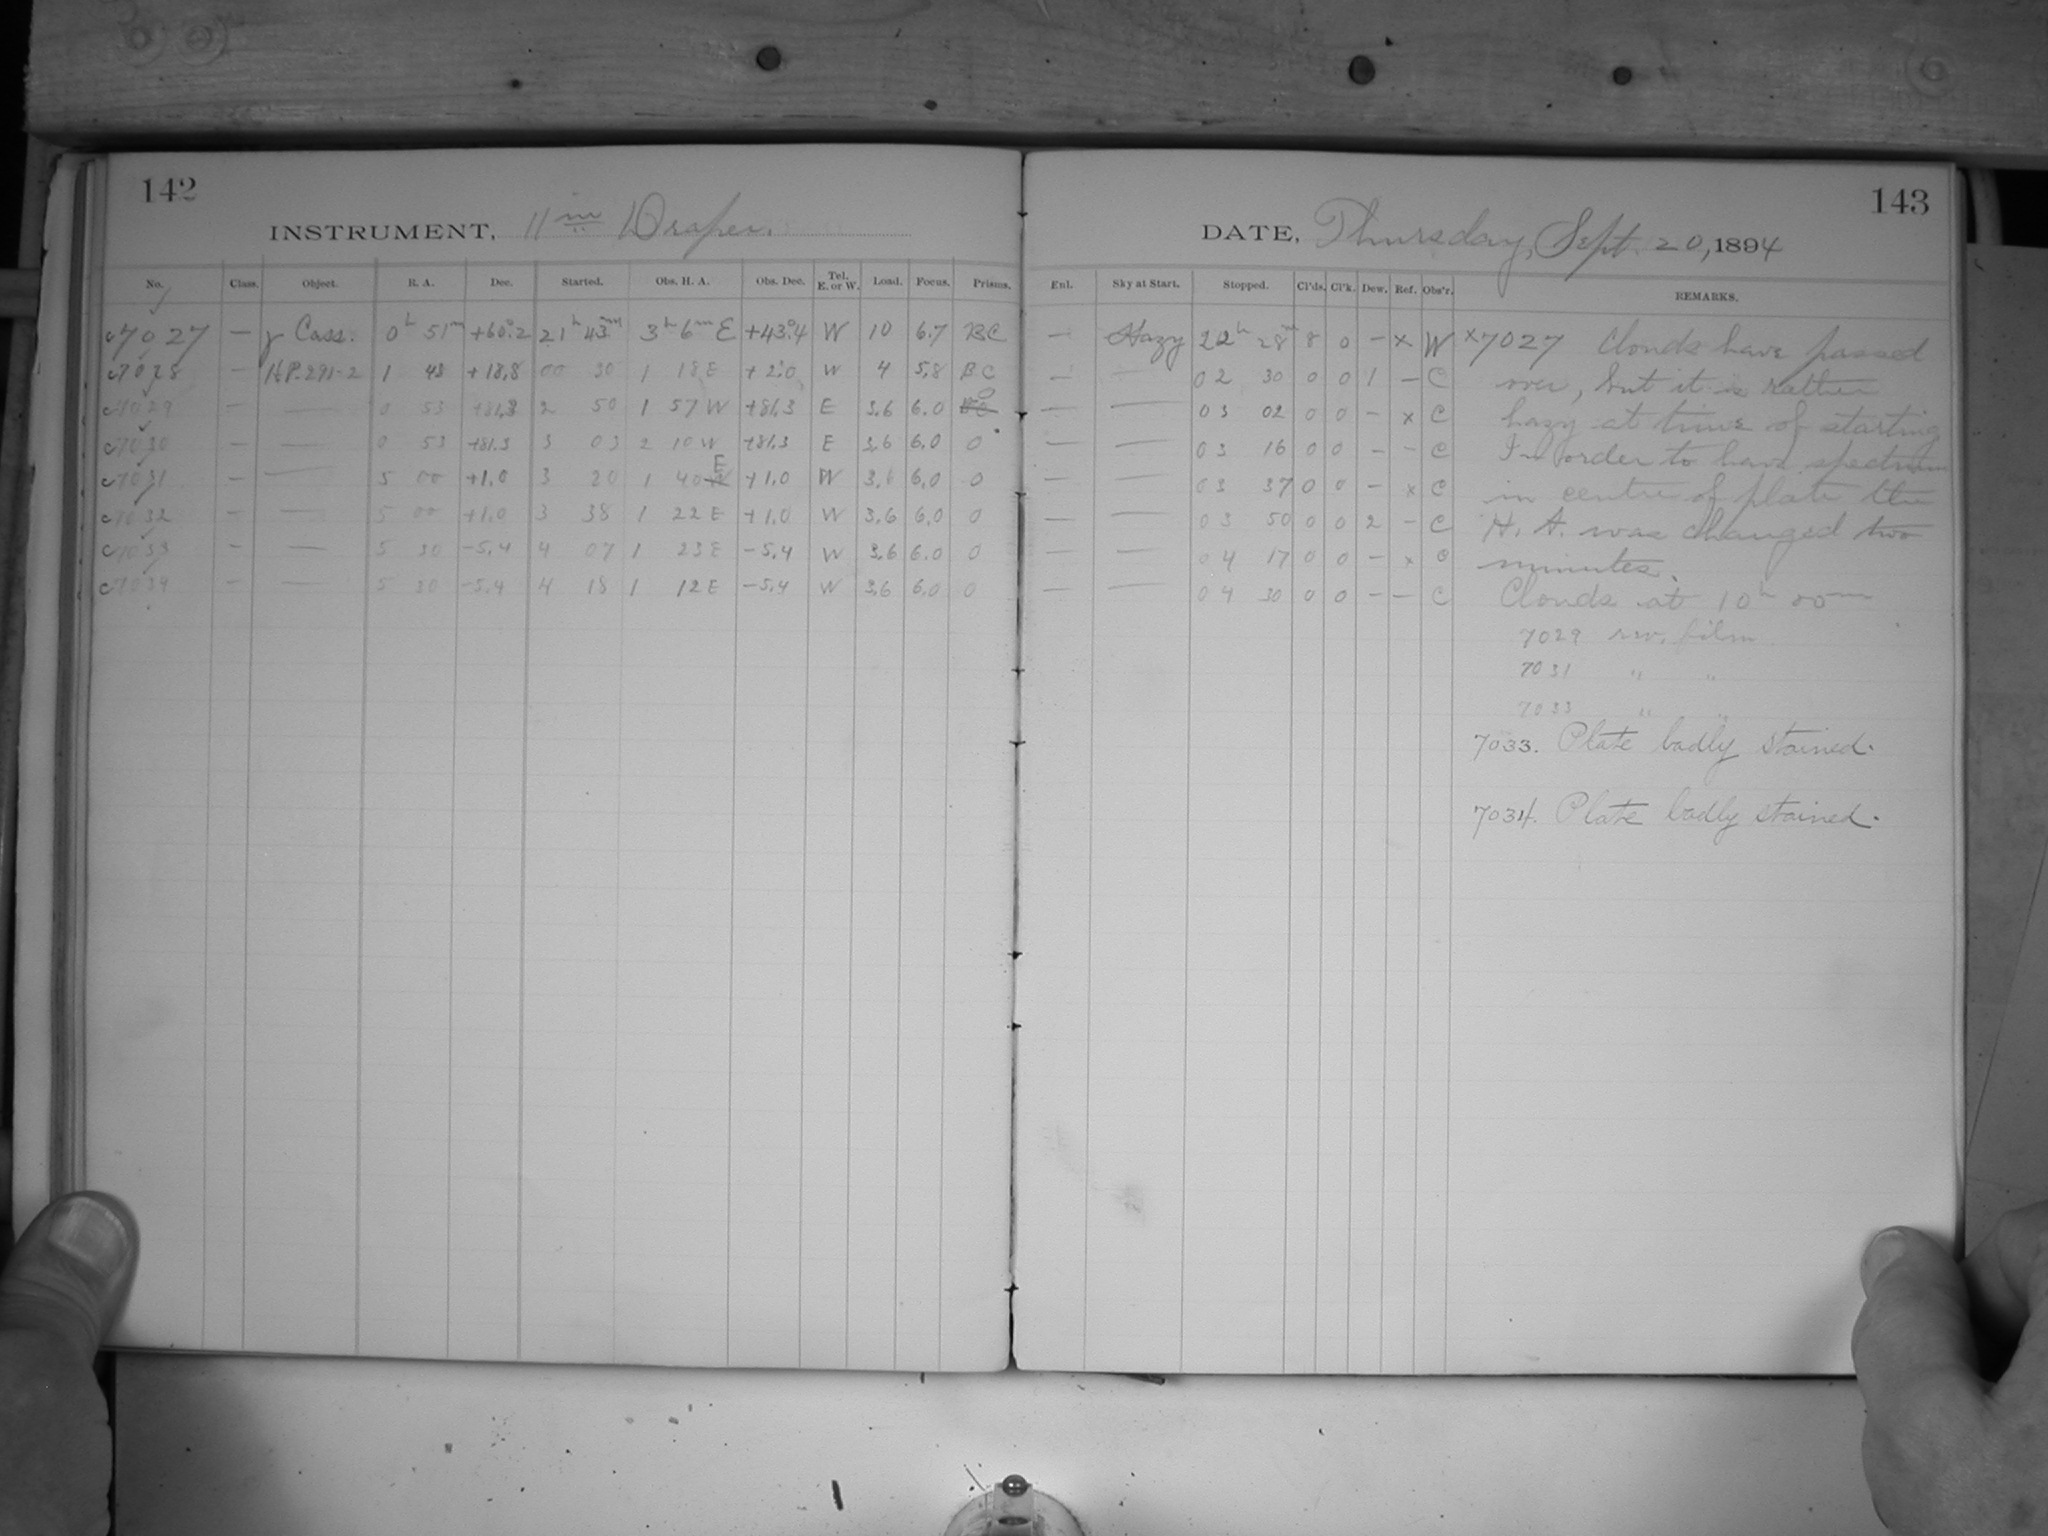 142
INSTRUMENT, 11 in Draper.
No. Class. Object. R. A. Dec. Started. Obs. H. A. Obs. Dec. Tel. E. or W. Load. Focus. Prisms.
c7027 — γ Cass. 0h 51m +60°.2 21h 43m 3h 6m E +43°.4 W 10 6.7 BC
c7028 — 1 43 +18.8 00 30 1 18 E + 2.0 W 4 5.8 BC
c7029 — — 0 53 +81.3 2 50 1 57 W +81.3 E 3.6 6.0 0
c7030 — — 0 53 +81.3 3 03 2 10 W +81.3 E 3.6 6.0 0
c7031 — — 5 00 +1.0 3 20 1 40 E +1.0 W 3.6 6.0 0
c7032 — — 5 00 +1.0 3 38 1 22 E +1.0 W 3.6 6.0 0
c7033 — — 5 30 −5.4 4 07 1 23 E −5.4 W 3.6 6.0 0
c7034 — — 5 30 −5.4 4 18 1 12 E −5.4 W 3.6 6.0 0
143
DATE, Thursday, Sept. 20, 1894
Enl. Sky at Start. Stopped. Cl'ds. Cl'k. Dew. Ref. Obs'r. REMARKS.
— Hazy 22h 28m 8 0 — x W
— — 02 30 0 0 1 — C
— — 03 02 0 0 — x C
— — 03 16 0 0 — — C
— — 03 37 0 0 — x C
— — 03 50 0 0 2 — C
— — 04 17 0 0 — x C
— — 04 30 0 0 — — C
x7027 Clouds have passed
over, but it is rather
hazy at time of starting
In order to have spectrum
in centre of plate the
H. A. was changed two
minutes.
Clouds at 10h 00m
7029 rev. film
7031 " "
7033 " "
7033. Plate badly stained.
7034. Plate badly stained.